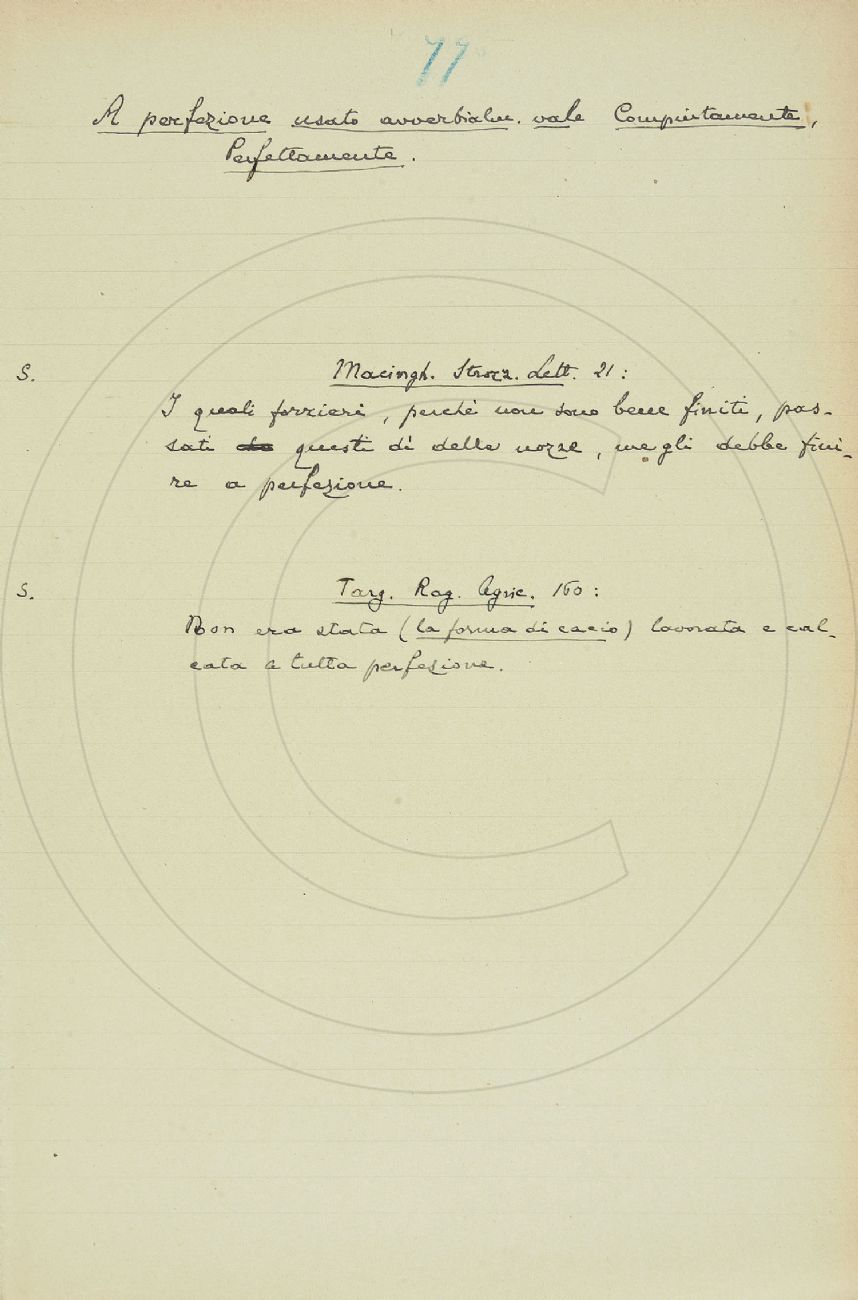 77
A perfezione usato avverbialm. vale Compiutamente,
Perfettamente.
S. Macingh. Strozz. Lett. 21:
I quali forzieri, perchè non sono bene finiti, pas-
sati questi dì delle nozze, me gli debbe fini-
re a perfezione.
S. Targ. Rag. Agric. 160:
Non era stata (la forma di cacio) lavorata e cal-
cata a tutta perfezione.